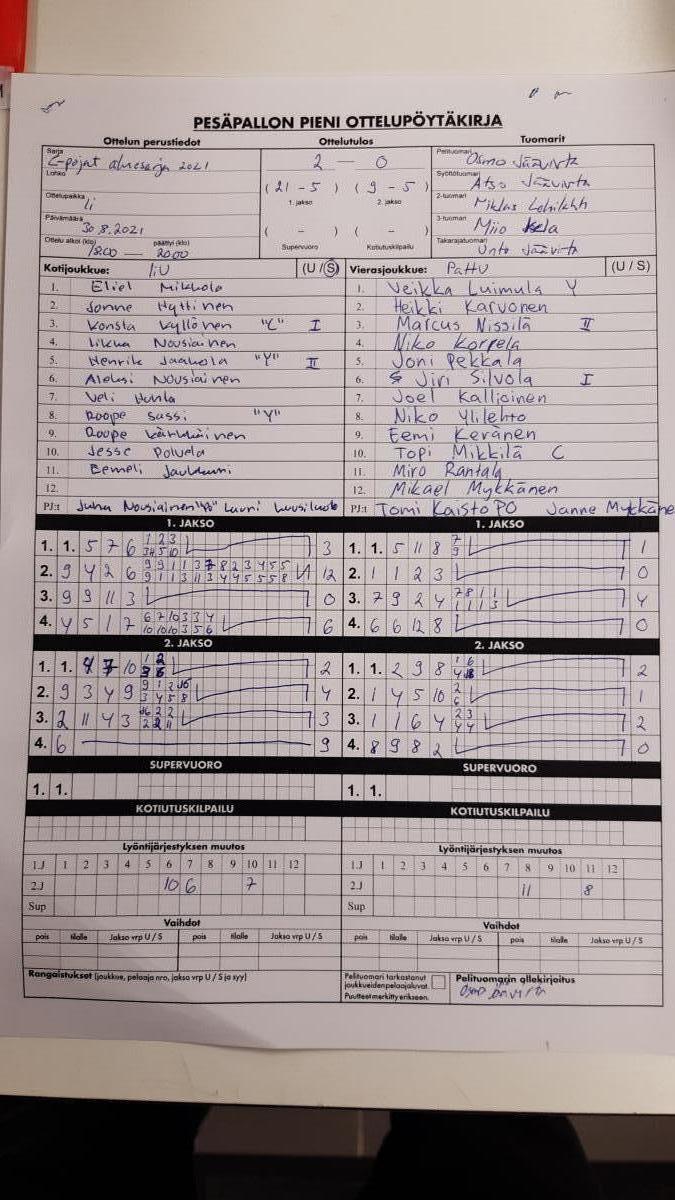 PESÄPALLON PIENI OTTELUPÖYTÄKIRJA
Ottelun perustiedot Ottelutulos Tuomarit
Sarja C-pojat aluesarja 2021
Lohko
Ottelupaikka Ii
Päivämäärä 30.8.2021
Ottelu alkoi (klo) päättyi (klo)
18.00 — 20.00
2 — 0
(21 - 5) (9 - 5)
1. jakso 2. jakso
( - ) ( - )
Supervuoro Kotiutuskilpailu
Pelituomari Osmo Jäävirta
Syöttötuomari Atso Jäävirta
2-tuomari Miklas
3-tuomari Miio
Takarajatuomari Unto Jäävirta
Kotijoukkue: IiU (U / S) Vierasjoukkue: PattU (U / S)
1. Eliel Mikkola
2. Jonne Hyttinen
3. Konsta Kyllönen "C" I
4. Iikka Nousiainen
5. Henrik Jaakola "Y" II
6. Aleksi Nousiainen
7. Veli
8. Roope Sassi "Y"
9. Roope Kärkkäinen
10. Jesse
11. Eemeli
12.
PJ:t Juha Nousiainen "PO" Lauri
1. Veikka Luimula Y
2. Heikki Karvonen
3. Marcus Nissilä II
4. Niko Korpela
5. Joni Pekkala
6. Jiri Silvola I
7. Joel Kallioinen
8. Niko Ylilehto
9. Eemi Keränen
10. Topi Mikkilä C
11. Miro Rantala
12. Mikael Mykkänen
PJ:t Tomi Kaisto PO Janne Mykkäne
1. JAKSO 1. JAKSO
1. 1. 5 7 6 3
2. 9 4 2 6 12
3. 9 9 11 3 0
4. 4 5 1 7 6
1. 1. 5 11 8 7 9 1
2. 1 1 2 3 0
3. 7 9 2 4 4
4. 6 6 12 8 0
2. JAKSO 2. JAKSO
1. 1. 4 7 10 2
2. 9 3 4 9 4
3. 2 11 4 3 3
4. 6 9
1. 1. 2 9 8 2
2. 1 4 5 10 2 6 1
3. 1 1 6 4 2 3 4 4 2
4. 8 9 8 2 0
SUPERVUORO SUPERVUORO
1. 1. 1. 1.
KOTIUTUSKILPAILU KOTIUTUSKILPAILU
Lyöntijärjestyksen muutos Lyöntijärjestyksen muutos
1.J 1 2 3 4 5 6 7 8 9 10 11 12 1.J 1 2 3 4 5 6 7 8 9 10 11 12
2.J 10 6 7 2.J 11 8
Sup Sup
Vaihdot Vaihdot
pois tilalle Jakso vrp U / S pois tilalle Jakso vrp U / S pois tilalle Jakso vrp U / S pois tilalle Jakso vrp U / S
Rangaistukset (joukkue, pelaaja nro, jakso vrp U / S ja syy)
Pelituomari tarkastanut
joukkueiden pelaajaluvat.
Puutteet merkitty erikseen.
Pelituomarin allekirjoitus